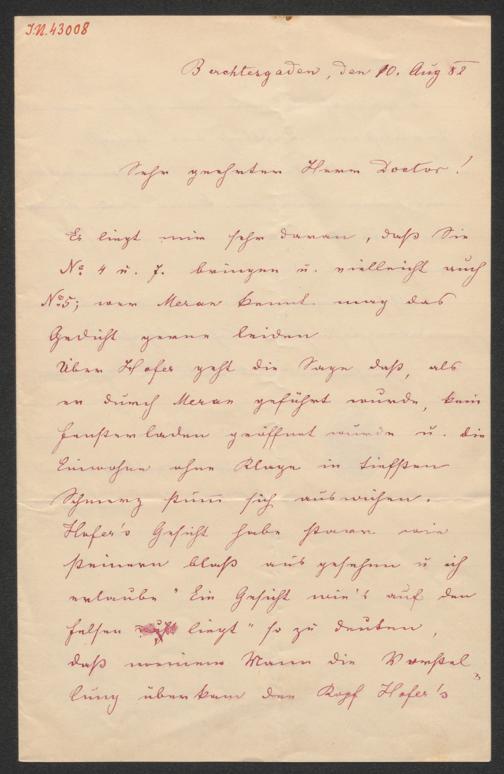 I.N. 43008
Berchtesgaden, den 10. Aug 82
Sehr geehrter Herr Doctor!
Es liegt mir sehr daran, daß Sie
No 4 u. 7. bringen u. vielleicht auch
No 5; wer Meran kennt mag das
Gedicht gerne leiden
Über Hofer geht die Sage daß, als
er durch Meran geführt wurde, kein
Fensterladen geöffnet wurde u. die
Einwohner ohne Klage in tiefsten
Schmerz stumm sich
Hofer's Gesicht habe starr wie
steinern blaß ausgesehen u ich
erlaube "Ein Gesicht wie's auf den
Felsen liegt" so zu deuten,
daß meinem Mann die Vorstel„
lung überkam den Kopf Hofer's